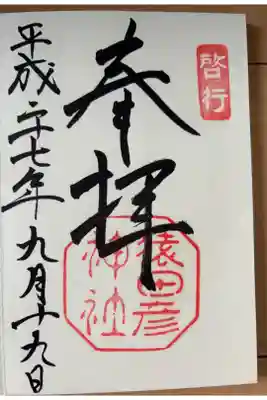 啓行
奉拝
猿田彦
神社
平成二十七年九月十九日